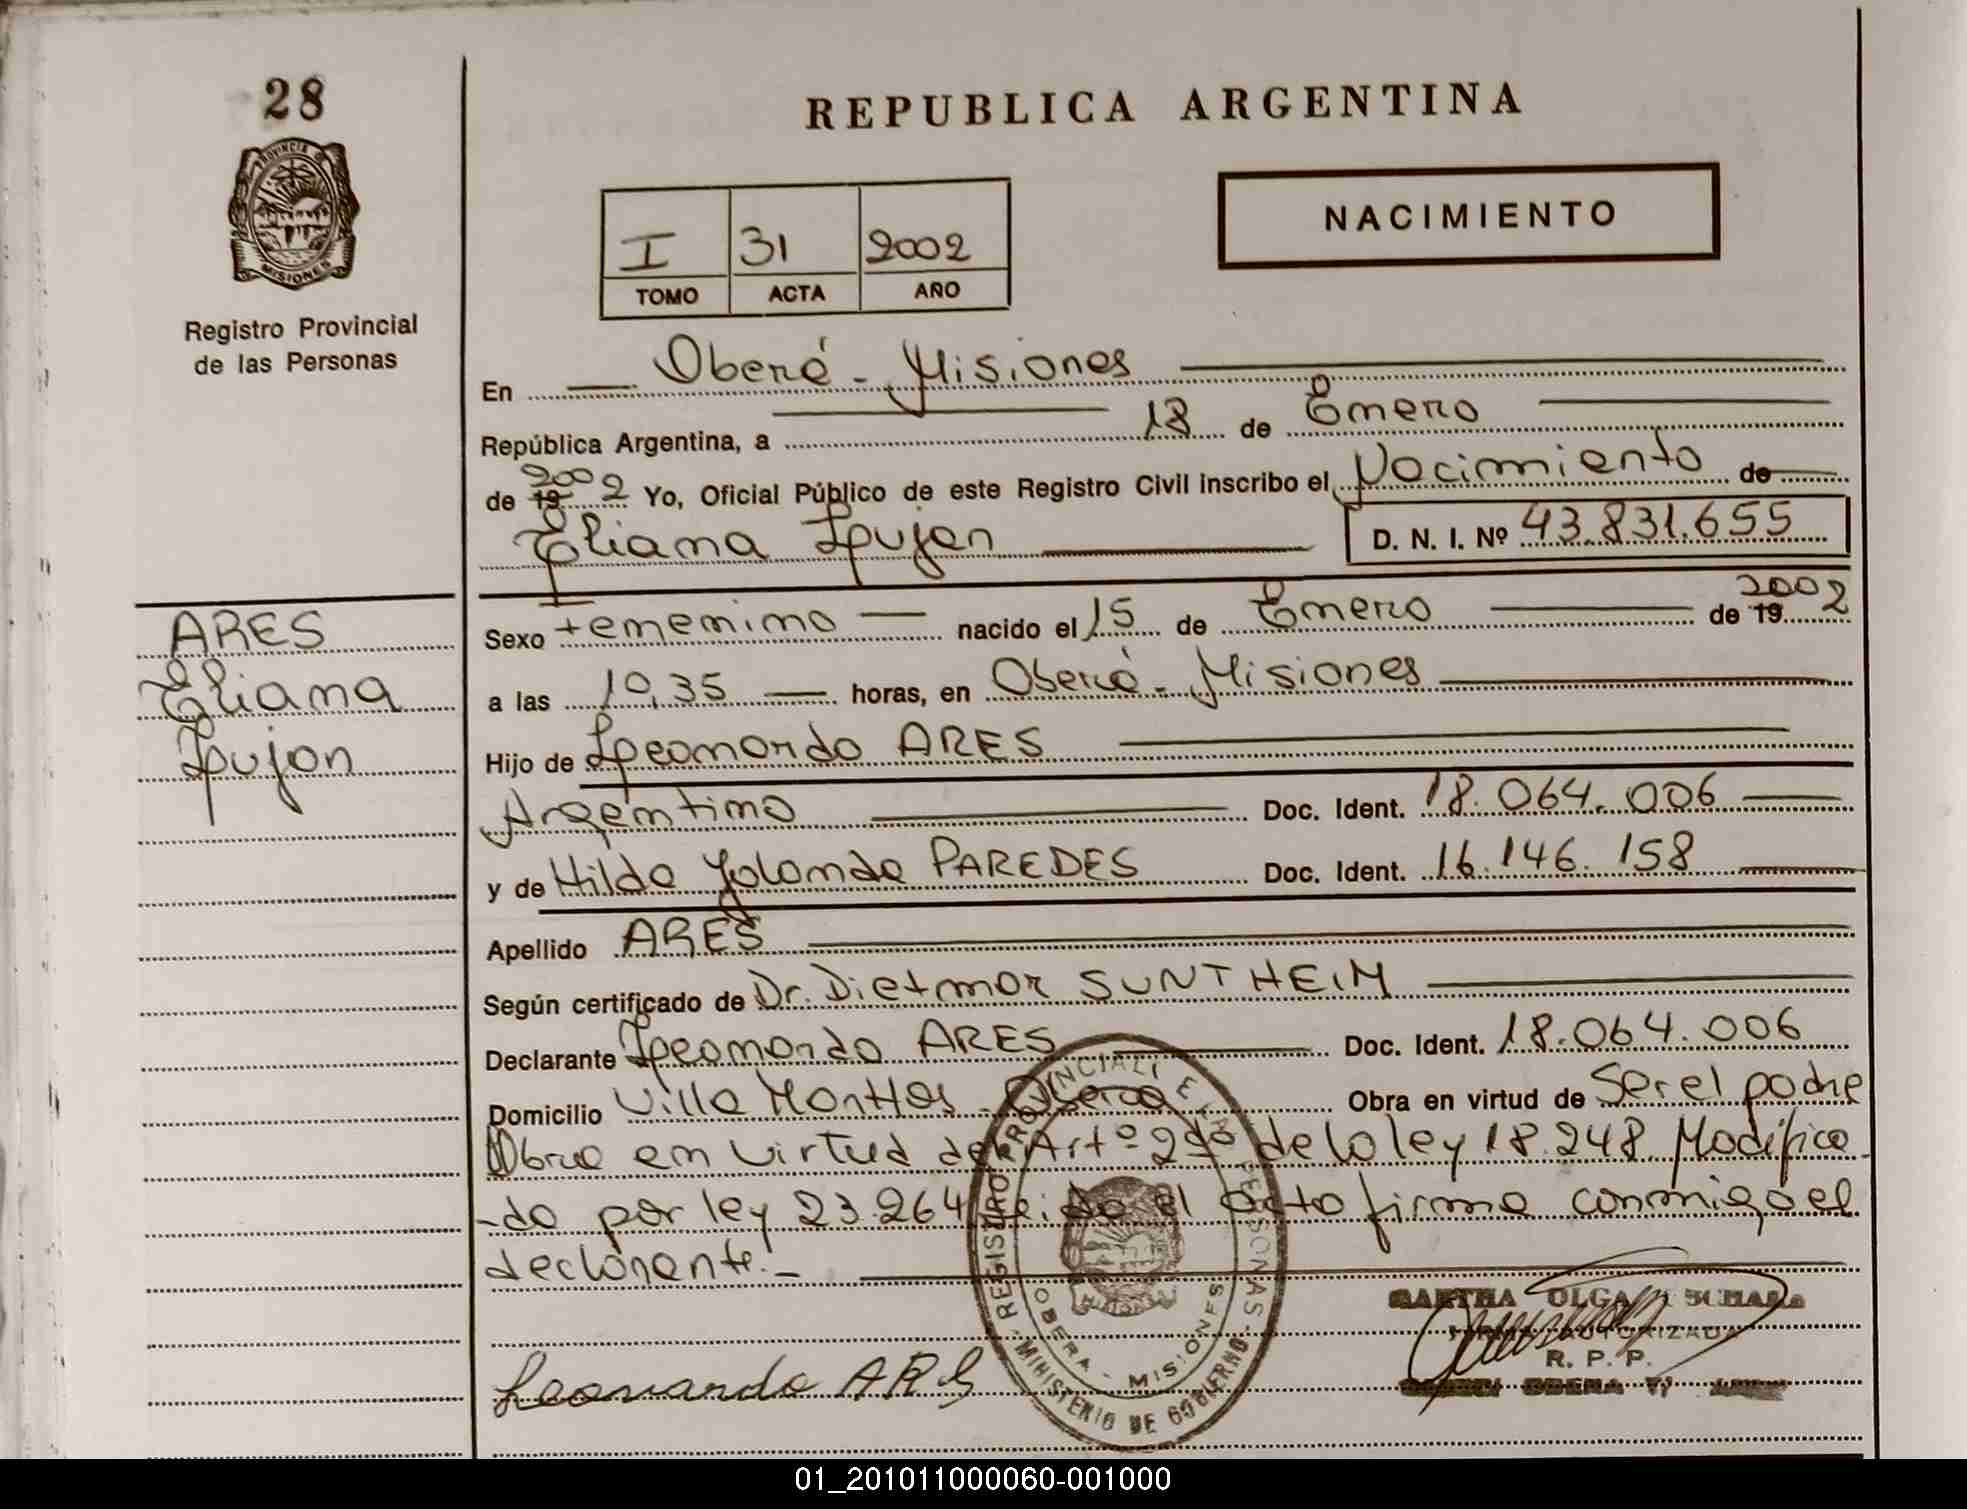 28
PROVINCIA DE
MISIONES
Registro Provincial
de las Personas
REPUBLICA ARGENTINA
NACIMIENTO
I 31 2002
TOMO ACTA AÑO
En Oberá - Misiones
República Argentina, a 18 de Enero
de 19 2002 Yo, Oficial Público de este Registro Civil inscribo el Nacimiento de
Eliana Lujan D. N. I. Nº 43.831.655
ARES
Eliana
Lujan
Sexo Femenino nacido el 15 de Enero de 19 2002
a las 10,35 horas, en Oberá - Misiones
Hijo de Leonardo ARES
Argentino Doc. Ident. 18.064.006
y de Hilda Yolanda PAREDES Doc. Ident. 16.146.158
Apellido ARES
Según certificado de Dr. Dietmar SUNTHEIM
Declarante Leonardo ARES Doc. Ident. 18.064.006
Domicilio Villa Oberá Obra en virtud de Ser el padre
Obra en virtud del Artº 2do de la ley 18.248 Modifica
-do por ley 23.264 Leida el acta firma conmigo el
declarante.-
REGISTRO PROVINCIAL DE LAS PERSONAS
OBERA - MISIONES
MINISTERIO DE GOBIERNO
Leonardo ARES
MARTHA OLGA
FIRMA AUTORIZADA
R. P. P.
OBERA
01_201011000060-001000